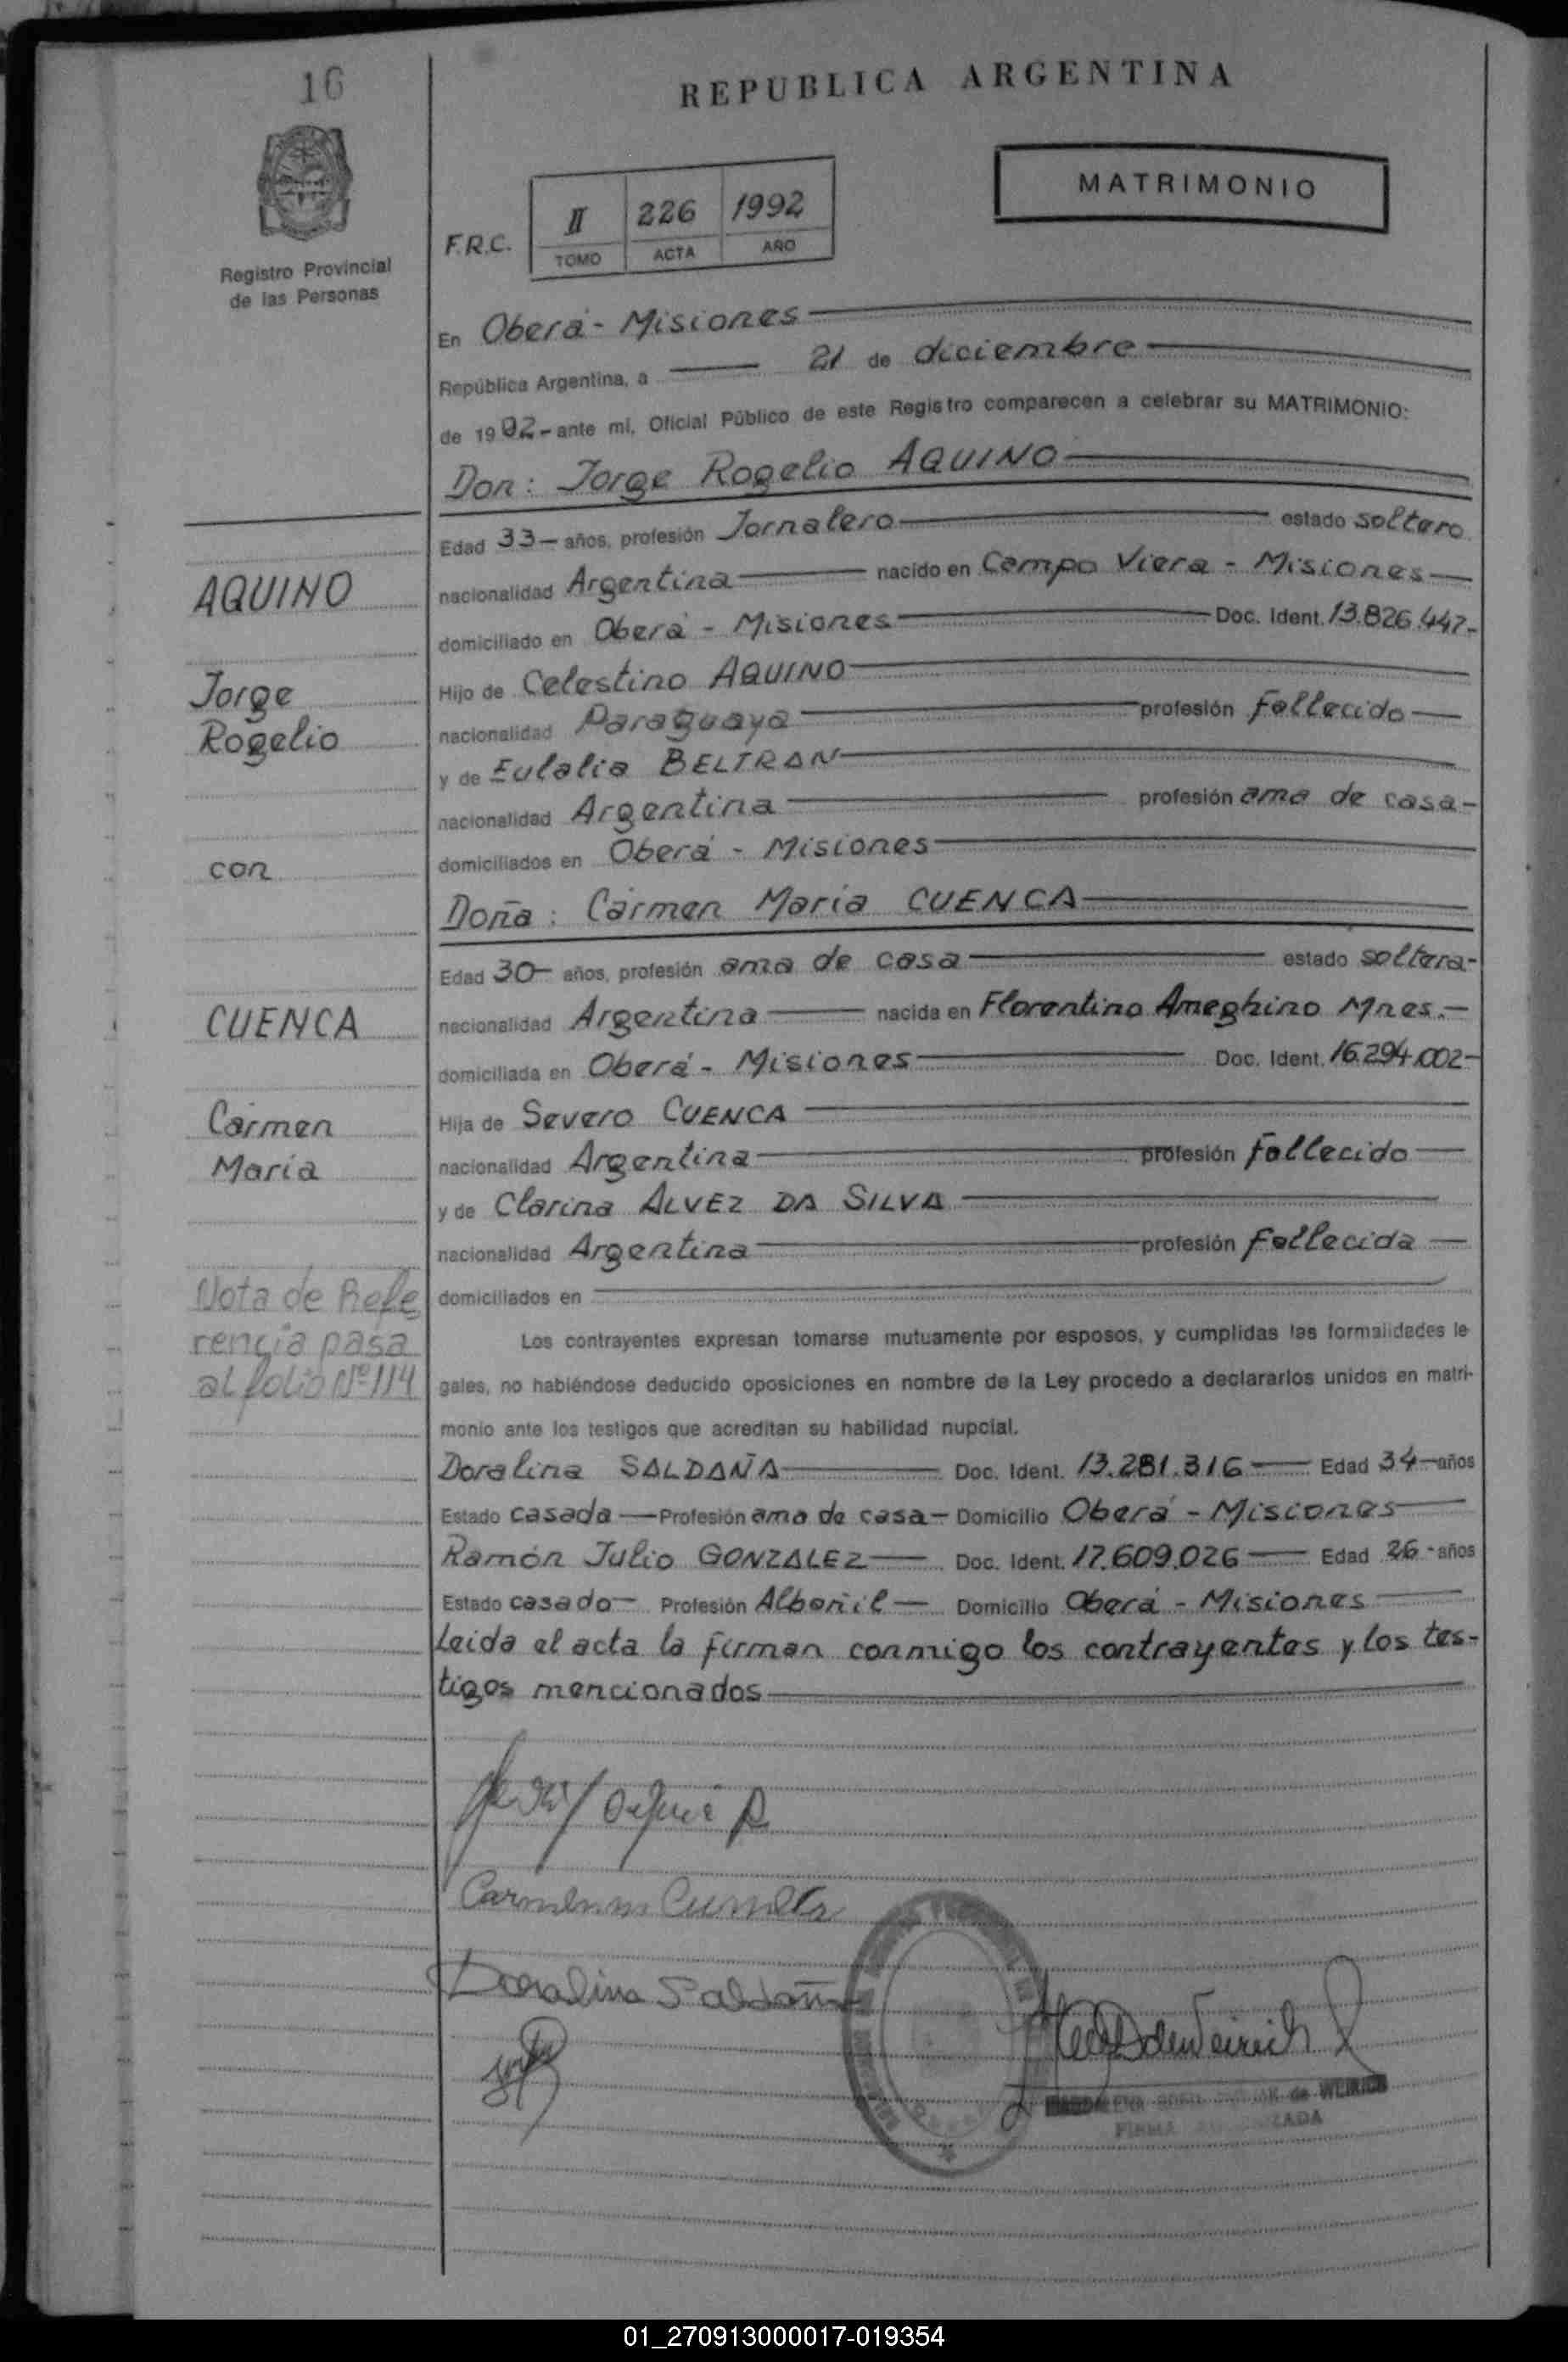 16
REPUBLICA ARGENTINA
MATRIMONIO
Registro Provincial
de las Personas
F.R.C.
II 226 1992
TOMO ACTA AÑO
En Oberá - Misiones
República Argentina, a 21 de diciembre
de 1992 - ante mi, Oficial Público de este Registro comparecen a celebrar su MATRIMONIO:
Don: Jorge Rogelio AQUINO
Edad 33 - años, profesión Jornalero estado soltero
nacionalidad Argentina nacido en Campo Viera - Misiones
domiciliado en Oberá - Misiones Doc. Ident. 13.826.447-
Hijo de Celestino AQUINO
nacionalidad Paraguaya profesión Fallecido
y de Eulalia BELTRAN
nacionalidad Argentina profesión ama de casa-
domiciliados en Oberá - Misiones
Doña: Cármen María CUENCA
Edad 30 - años, profesión ama de casa estado soltera-
nacionalidad Argentina nacida en Florentino Ameghino Mnes.-
domiciliada en Oberá - Misiones Doc. Ident. 16.294.002-
Hija de Severo CUENCA
nacionalidad Argentina profesión Fallecido
y de Clarina ALVEZ DA SILVA
nacionalidad Argentina profesión Fallecida
domiciliados en
Los contrayentes expresan tomarse mutuamente por esposos, y cumplidas las formalidades le-
gales, no habiéndose deducido oposiciones en nombre de la Ley procedo a declararlos unidos en matri-
monio ante los testigos que acreditan su habilidad nupcial.
Doralina SALDAÑA Doc. Ident. 13.281.316 Edad 34 - años
Estado casada - Profesión ama de casa - Domicilio Oberá - Misiones
Ramón Julio GONZALEZ Doc. Ident. 17.609.026 Edad 26 - años
Estado casado - Profesión Albañil - Domicilio Oberá - Misiones
Leida el acta la firman conmigo los contrayentes y los tes-
tigos mencionados
AQUINO
Jorge
Rogelio
con
CUENCA
Cármen
María
Nota de Refe
rencia pasa
al folio Nº 114
Doralina Saldaña
de WEIRICH
FIRMA
01_270913000017-019354